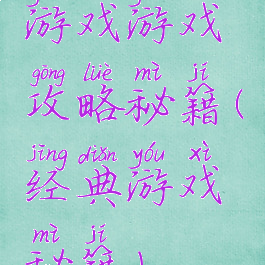 游戏游戏
gōng lüè mì jí
攻略秘籍(
jīng diǎn yóu xì
经典游戏
mì jí
秘籍)